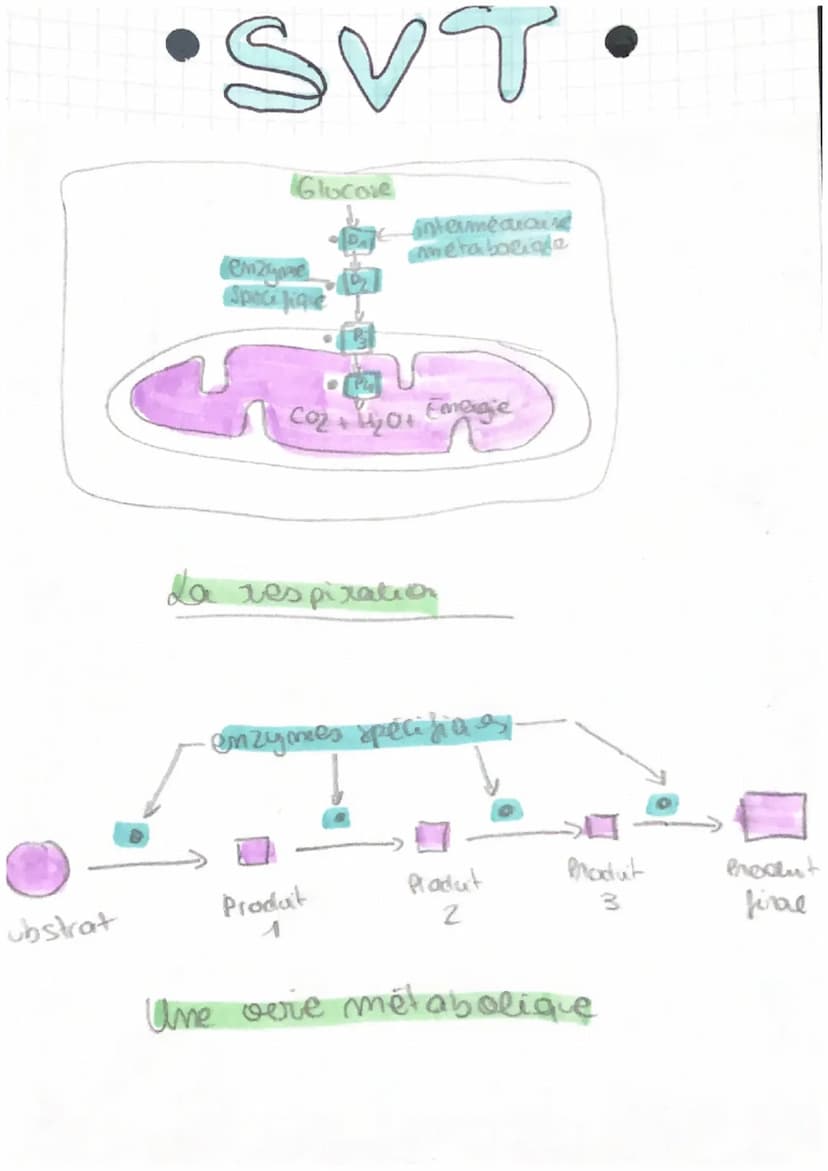 • SVT •
Glucose
P1
intermédiaire
métabolique
enzyme
spécifique
P2
P3
P4
CO2 + H2O + Energie
La respiration
enzymes spécifiques
ubstrat
Produit
1
Produit
2
Produit
3
Produit
final
Une voie métabolique